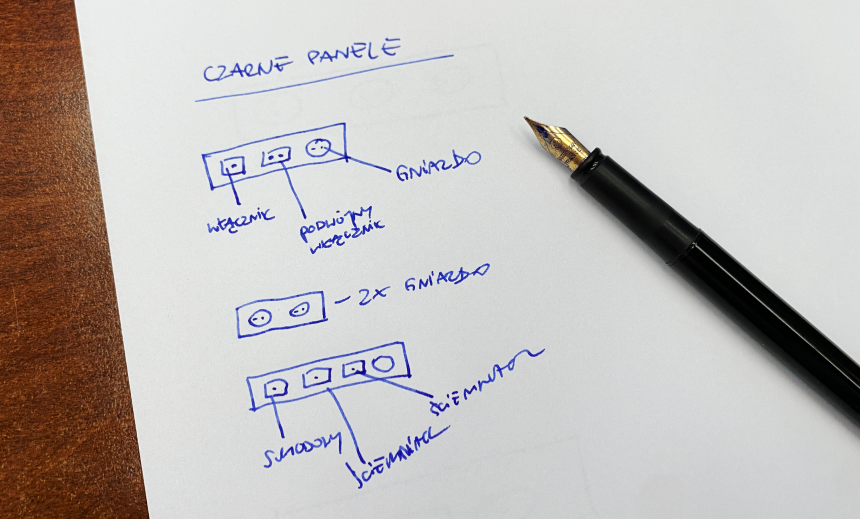 CZARNE PANELE
GNIAZDO
WŁĄCZNIK
PODWÓJNY
WŁĄCZNIK
2X GNIAZDO
ŚCIEMNIACZ
SCHODOWY
ŚCIEMNIACZ